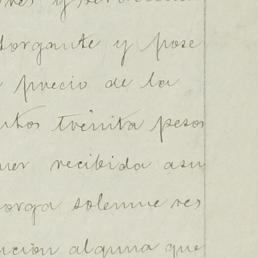 res y
torgante y pose
precio de la
ntos treinta pesos
ner recibida a su
orga solemne res
ncion alguna que